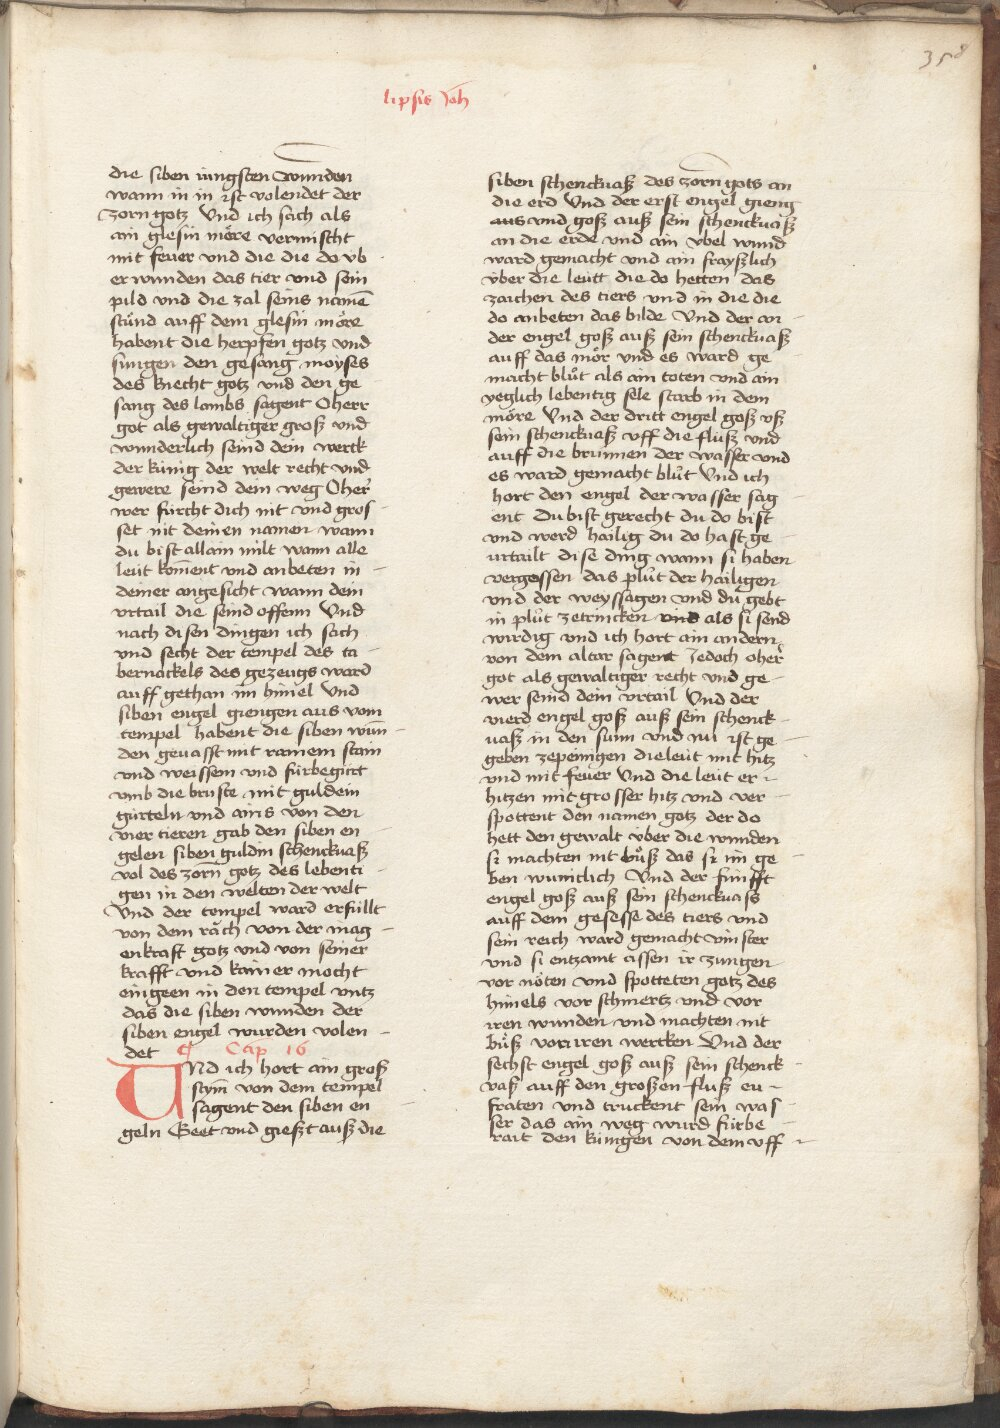 358
lipsis Joh
die siben iungsten wunden
wann in in ist volendet der
zorn gotz Vnd ich sach als
ain glesin möre vermischt
mit feuer vnd die die do vb
erwunden das tier vnd sein
pild vnd die zal seins namē
stünd auff dem glesin möre
habent die herpfen gotz vnd
sungen den gesang moyses
des knecht gotz vnd den ge
sang des lambs sagent O herr
got als gewaltiger groß vnd
wunderlich seind dein werck
der künig der welt recht vnd
gewere seind dein weg O her̄
wer fürcht dich nit vnd gros
set nit deinen namen wann
du bist allain milt wann alle
leüt kom̄ent vnd anbeten in
deiner angesicht wann dein
vrtail die seind offenn Vnd
nach disen dingen ich sach
vnd secht der tempel des ta
bernackels des gezeugs ward
auff gethan im himel Vnd
siben engel giengen aus vom
tempel habent die siben wun̄
den geuasst mit rainem stain
vnd weissem vnd fürbegürt
vmb die brüste mit guldein
gürteln vnd ains von den
vier tieren gab den siben en
gelen siben guldin schenckuaß
vol des zorn gotz des lebenti
gen in den welten der welt
Vnd der tempel ward erfüllt
von dem räch von der mag
enkraft gotz vnd von seiner
krafft vnd kainer mocht
eingeen in den tempel vntz
das die siben wunden der
siben engel wurden volen
det ¶ Cap 16
VNd ich hort ain groß
stym̄ von dem tempel
sagent den siben en
geln Geet vnd gießt auß die
siben schenckuaß des zorn gots an
die erd Vnd der erst engel gieng
aus vnd goß auß sein schenckuaß
an die erde vnd ain vbel wund
ward gemacht vnd ain frayßlich
vber die leütt die do hetten das
zaichen des tiers vnd in die die
do anbeten das bilde Vnd der an
der engel goß auß sein schenckuaß
auff das mör vnd es ward ge
macht blůt als ain toten vnd ain
yeglich lebentig sele starb in dem
möre Vnd der dritt engel goß vß
sein schenckuaß vff die flüß vnd
auff die brunnen der wasser vnd
es ward gemacht blůt Vnd ich
hort den engel der wasser sag
ent Du bist gerecht du do bist
vnd werd hailig du do hast ge
urtailt dise ding wann si haben
vergossen das plůt der hailigen
vnd der weyssagen vnd du gebt
in plůt zetrincken vnd als si send
wirdig vnd ich hort ain andern
von dem altar sagent Jedoch o her̄
got als gewaltiger recht vnd ge
wer seind dein vrtail Vnd der
vierd engel goß auß sein schenck
uaß in den sunn vnd im ist ge
geben zepeinigen die leüt mit hitz
vnd mit feuer Vnd die leüt er
hitzen mit grosser hitz vnd ver
spottent den namen gotz der do
hett den gewalt über die wunden
si machten nit bůß das si im ge
ben wunnlich Vnd der fünfft
engel goß auß sein schenckuass
auff dem gesesse des tiers vnd
sein reich ward gemacht vinster
vnd si entzamt assen ir zungen
vor nöten vnd spotteten gotz des
himels vor schmertz vnd vor
iren wunden vnd machten nit
bůß von iren wercken Vnd der
sechst engel goß auß sein schenck
vaß auff den großen fluß eu
fraten vnd truckent sein was
ser das ain weg wurd fürbe
rait den künigen von dem vff